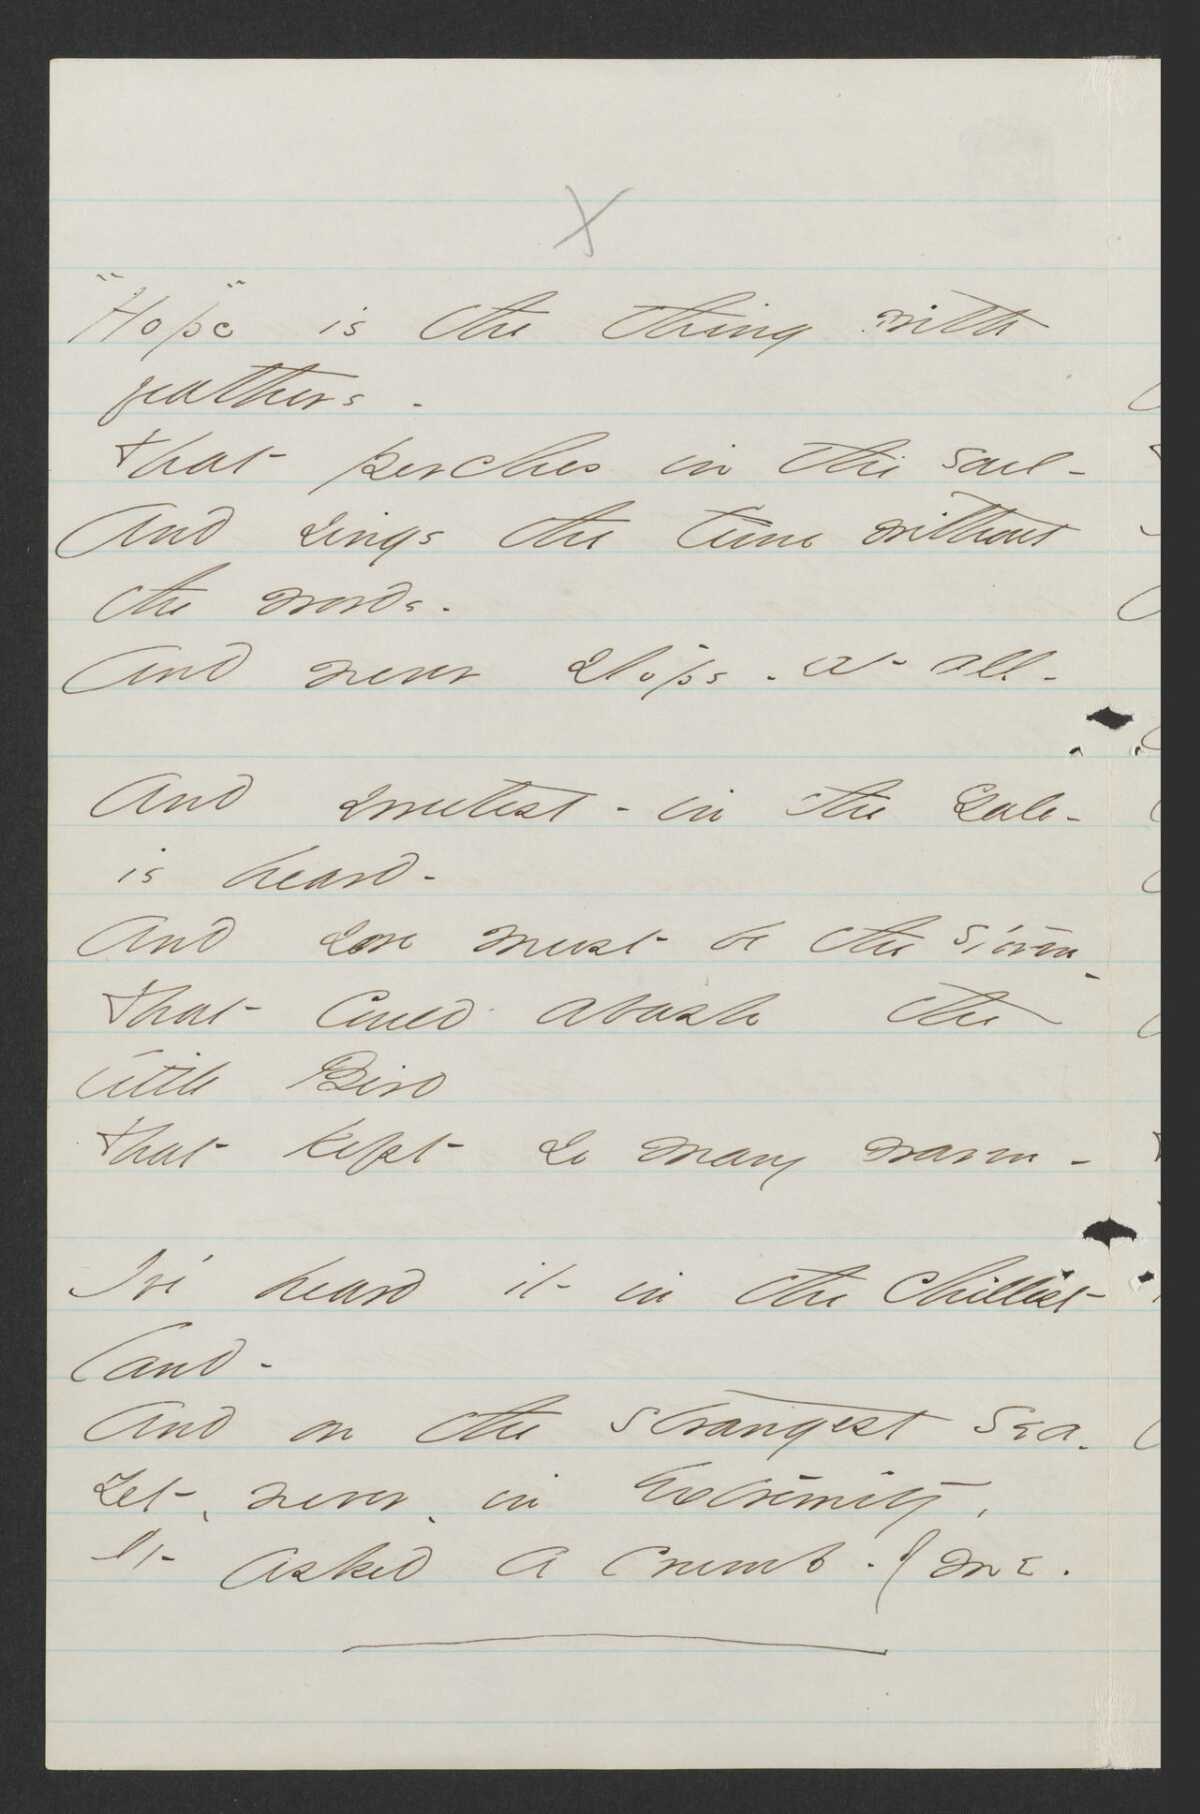 X
"Hope" is the thing with
feathers -
That perches in the soul -
And sings the tune without
the words -
And never stops - at all -
And sweetest - in the Gale -
is heard -
And sore must be the storm -
That could abash the
little Bird
That kept so many warm -
I've heard it in the chillest
land -
And on the strangest Sea -
Yet, never, in Extremity,
It asked a crumb - of me.